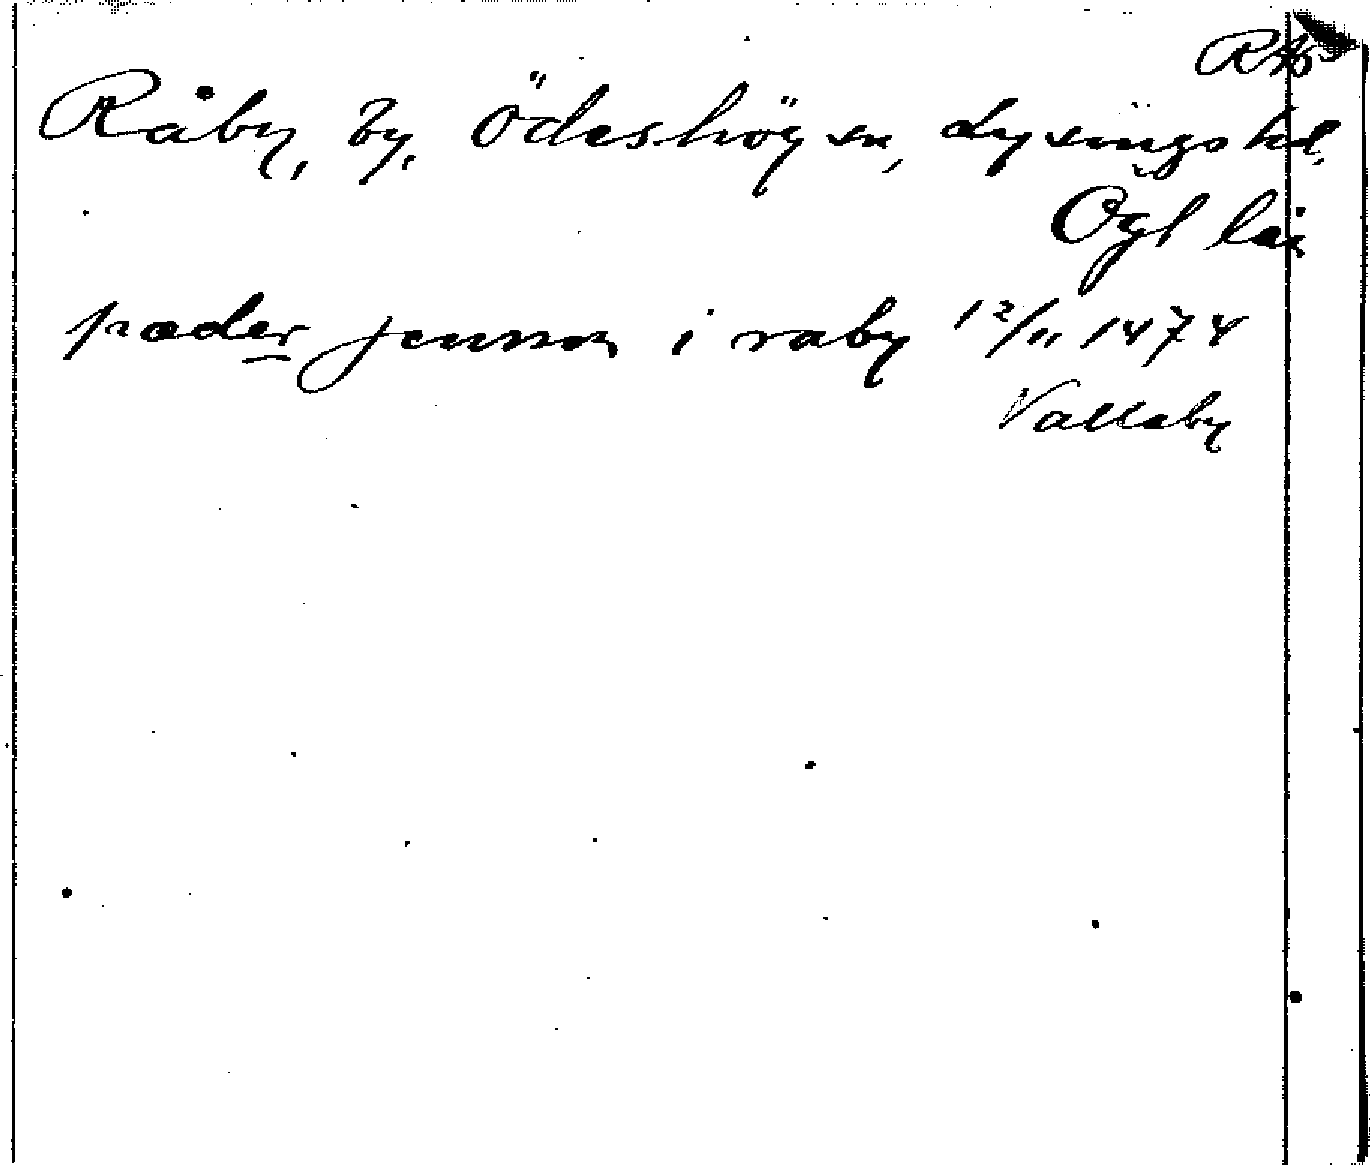 RA
Råby, by, Ödeshög sn, Lysings hd,
Ögl län
pæder jenson i raby 12/11 1474
Vallaby